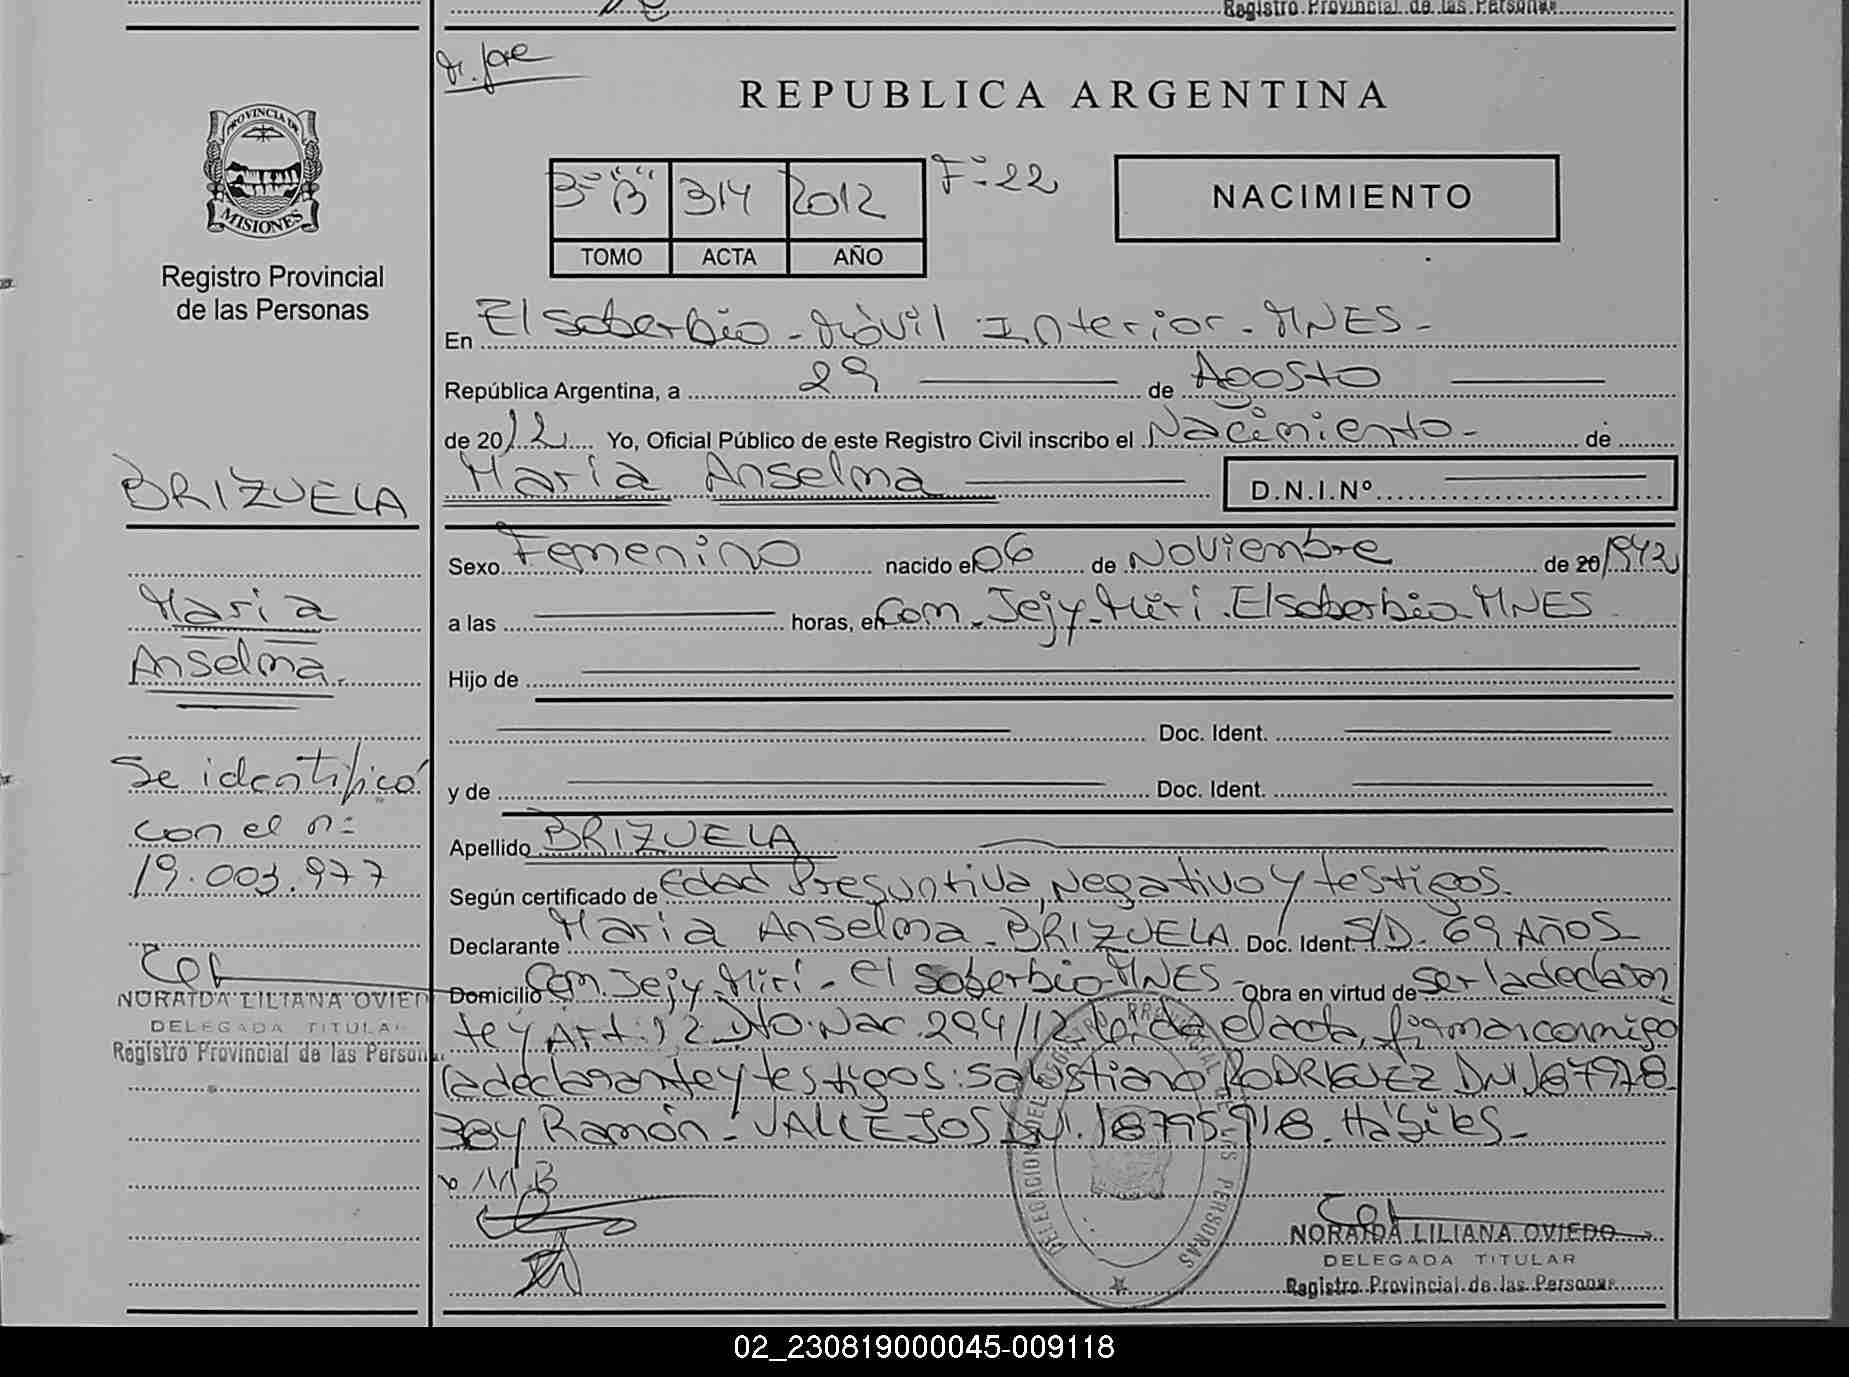 Registro Provincial de las Personas
REPUBLICA ARGENTINA
PROVINCIA DE
MISIONES
Registro Provincial
de las Personas
3º "B" 314 2012 Fº 22
TOMO ACTA AÑO
NACIMIENTO
En El Soberbio - Móvil Interior - MNES -
República Argentina, a 29 de Agosto
de 2012 Yo, Oficial Público de este Registro Civil inscribo el Nacimiento - de
María Anselma D.N.I.Nº
BRIZUELA
Sexo Femenino nacido el 06 de Noviembre de 20 1942
a las horas, en Com. Jejy - Miri. El Soberbio - MNES
María
Anselma.
Hijo de
Doc. Ident.
y de Doc. Ident.
Se identificó
con el nº
19.003.977
Apellido BRIZUELA
Según certificado de Edad Presuntiva, Negativo y testigos.
Declarante María Anselma - BRIZUELA Doc. Ident S/D - 69 AÑOS
Domicilio Com. Jejy - Miri - El Soberbio - MNES - Obra en virtud de ser la declaran
te y Art: 12 Dto. Nac. 294/12 leída el acta, firman conmigo
la declarante y testigos: Salustiano RODRIGUEZ DNI. 187978
38 y Ramón - VALLEJOS DNI. 18795918. Hábiles -
M.B
NORAIDA LILIANA OVIED
DELEGADA TITULAR
Registro Provincial de las Person
DELEGACION DEL REGISTRO PROVINCIAL DE LAS PERSONAS
NORAIDA LILIANA OVIEDO
DELEGADA TITULAR
Registro Provincial de las Personas
02_230819000045-009118